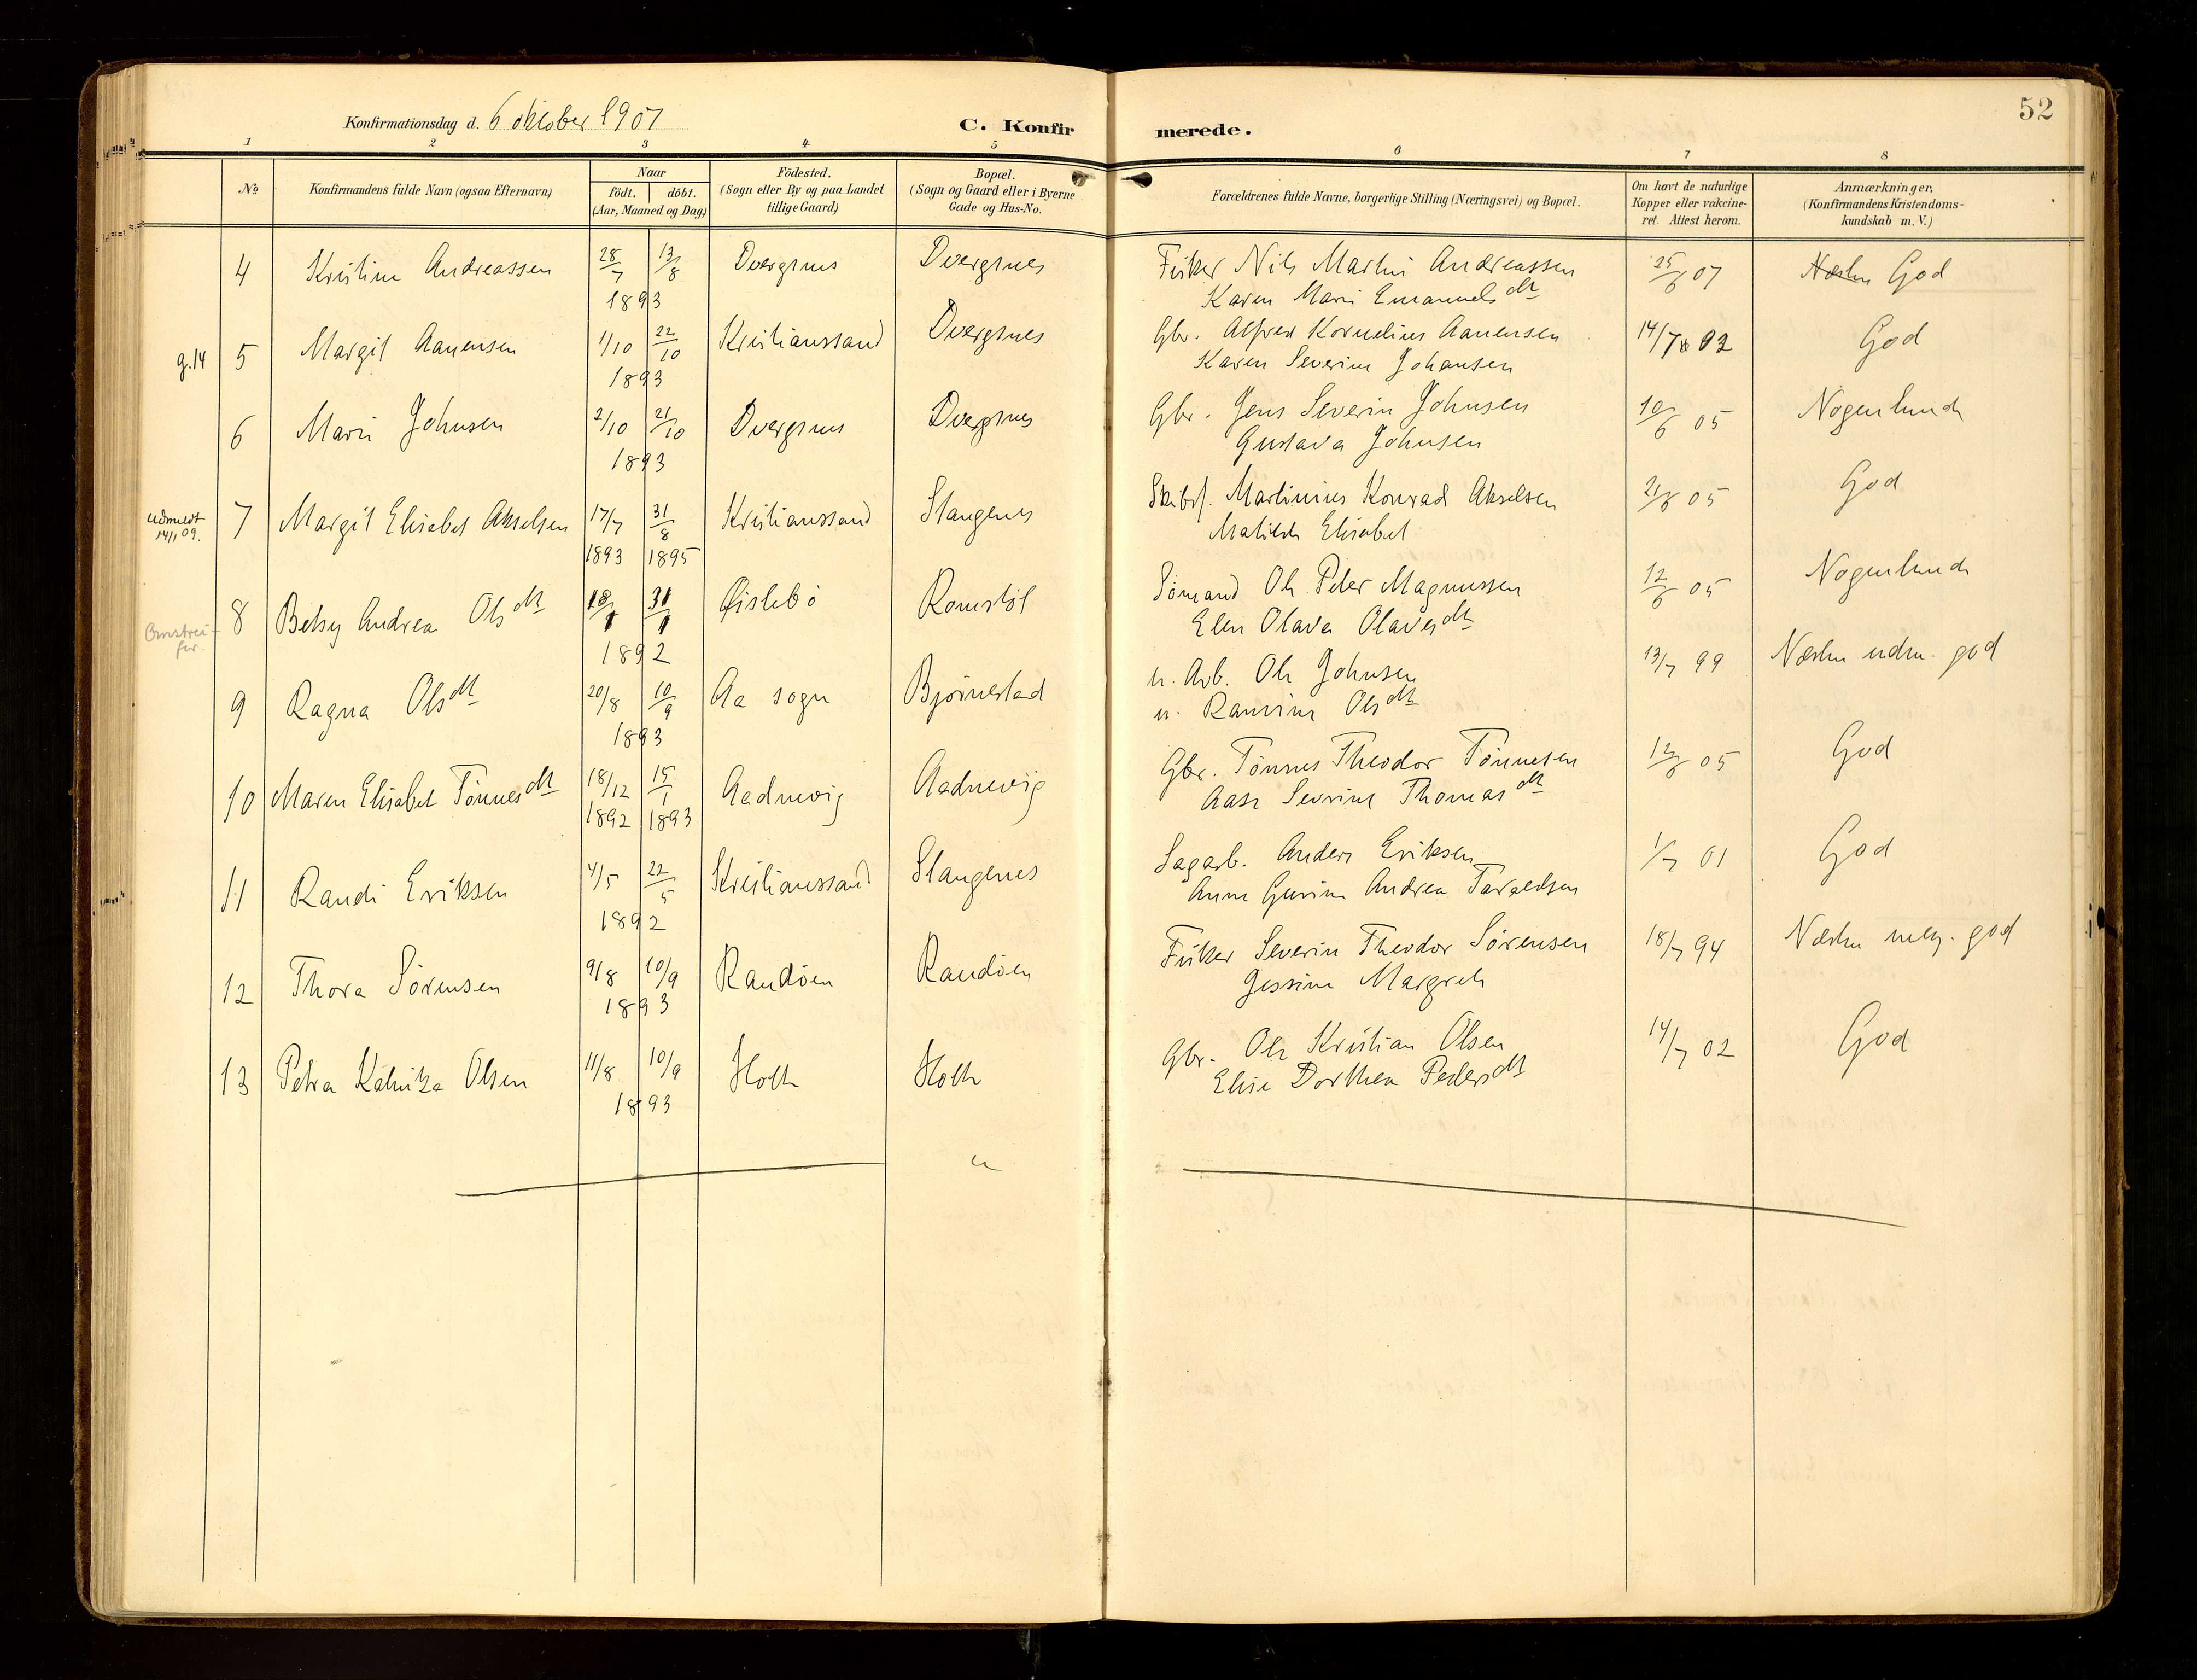 52
Konfirmationsdag d. 6 oktober 1907
C. Konfirmerede.
1 2 3 4 5 6 7 8
No
Konfirmandens fulde Navn (ogsaa Efternavn)
Naar
födt. döbt.
(Aar, Maaned og Dag)
Födested.
(Sogn eller By og paa Landet
tillige Gaard)
Bopæl.
(Sogn og Gaard eller i Byerne
Gade og Hus-No.
Forældrenes fulde Navne, borgerlige Stilling (Næringsvei) og Bopæl.
Om havt de naturlige
Kopper eller vakcine-
ret. Attest herom.
Anmærkninger.
(Konfirmandens Kristendoms-
kundskab m. V.)
4 Kristine Andreassen 28/7 13/8 Dvergsnes Dvergsnes Fisker Nils Martin Andreassen 25/6 07 Næsten God
1893 Karen Marie Emanuelsdtr
g.14 5 Margit Aanensen 1/10 22/10 Kristianssand Dvergsnes Gbr. Alfred Kornelius Aanensen 14/7 02 God
1893 Karen Severine Johansen
6 Marie Johnsen 2/10 21/10 Dvergsnes Dvergsnes Gbr. Jens Severin Johnsen 10/6 05 Nogenlunde
1893 Gustava Johnsen
udmeldt 14/1 09. 7 Margit Elisabet Akselsen 17/7 31/8 Kristianssand Stangenes Skibsf. Martinius Konrad Akselsen 21/6 05 God
1893 1895 Matilde Elisabet
8 Betsy Andrea Olsdtr 18/1 31/1 Øislebö Romstöl Sömand Ole Peter Magnussen 12/6 05 Nogenlunde
1892 Elen Olava Olavesdtr
9 Ragna Olsdtr 20/8 10/9 Aa sogn Bjørnestad u. Arb. Ole Johnsen 13/7 99 Næsten udm. god
1893 u. Ramine Olsdtr
10 Maren Elisabet Tönnesdtr 18/12 15/1 Aadnevig Aadnevig Gbr. Tönnes Theodor Tönnesen 12/6 05 God
1892 1893 Aase Sevrine Thomasdtr
11 Randi Eriksen 4/5 22/5 Kristianssand Stangenes Sagarb. Anders Eriksen 1/7 01 God
1892 Anne Gurine Andrea Taraldsen
12 Thora Sörensen 9/8 10/9 Randöen Randöen Fisker Severin Theodor Sörensen 18/7 94 Næsten meg. god
1893 Jessine Margrete
13 Petra Kalnika Olsen 11/8 10/9 Holte Holte Gbr. Ole Kristian Olsen 14/7 02 God
1893 Elise Dorthea Pedersdtr